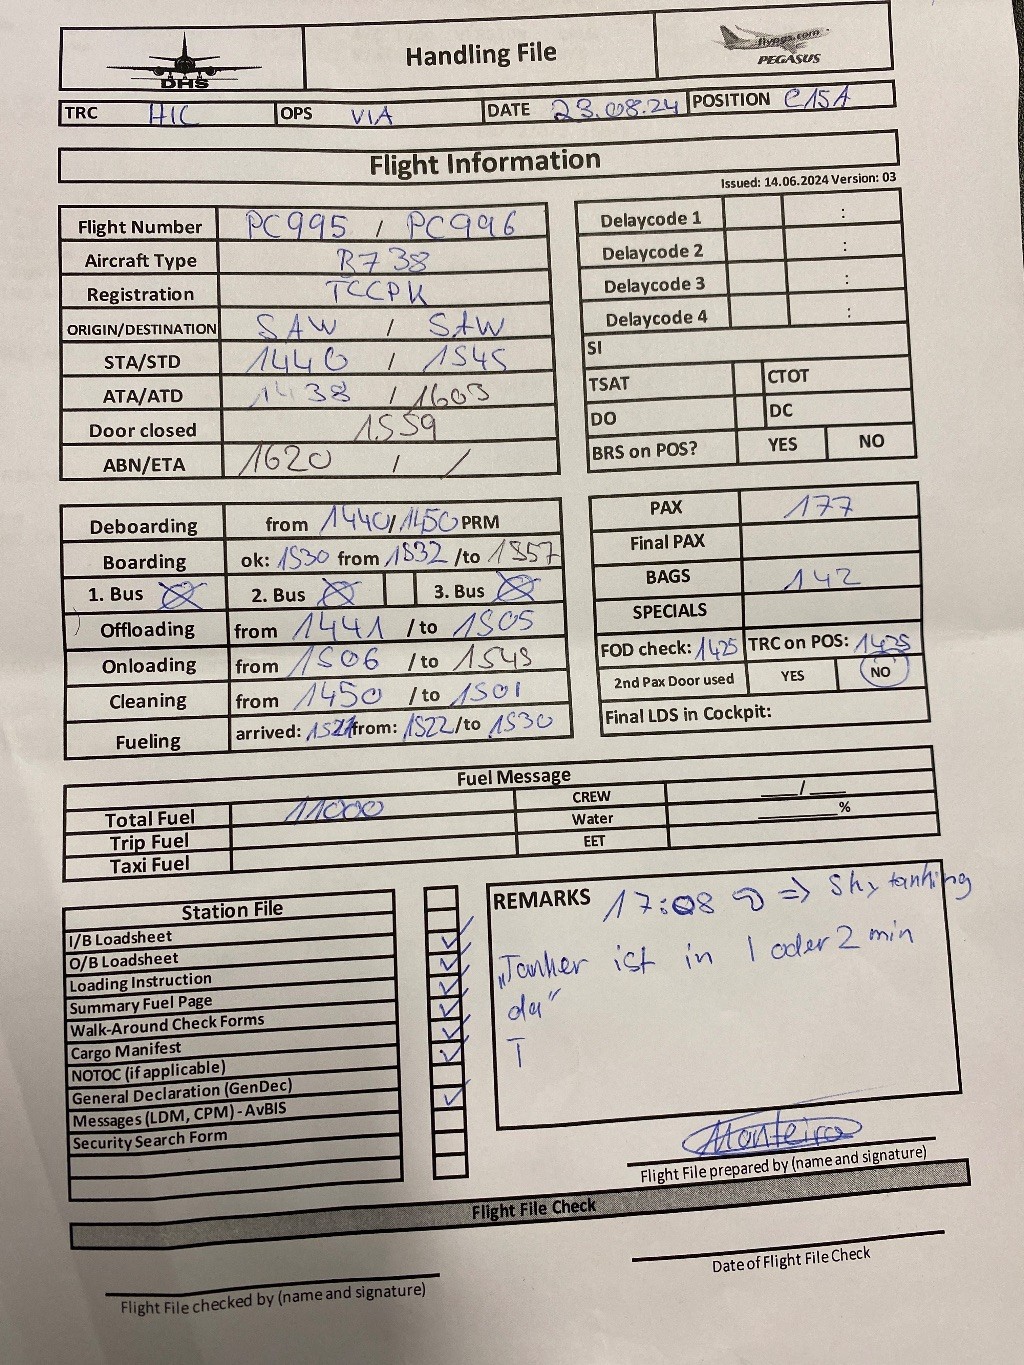 DHS
Handling File
flypgs.com
PEGASUS
TRC HIC OPS VIA DATE 23.08.24 POSITION C15A
Flight Information
Issued: 14.06.2024 Version: 03
Flight Number PC995 / PC996
Aircraft Type B738
Registration TCCPK
ORIGIN/DESTINATION SAW / SAW
STA/STD 1440 / 1545
ATA/ATD 1438 / 1603
Door closed 1559
ABN/ETA 1620 / /
Delaycode 1 :
Delaycode 2 :
Delaycode 3 :
Delaycode 4 :
SI
TSAT CTOT
DO DC
BRS on POS? YES NO
Deboarding from 1440/1450 PRM
Boarding ok: 1530 from 1532 /to 1557
1. Bus 2. Bus 3. Bus
Offloading from 1441 /to 1505
Onloading from 1506 /to 1545
Cleaning from 1450 /to 1501
Fueling arrived: 1521 from: 1522 /to 1530
PAX 177
Final PAX
BAGS 142
SPECIALS
FOD check: 1425 TRC on POS: 1425
2nd Pax Door used YES NO
Final LDS in Cockpit:
Fuel Message
Total Fuel 11000 CREW ___/___
Trip Fuel Water ______%
Taxi Fuel EET
Station File
I/B Loadsheet
O/B Loadsheet
Loading Instruction
Summary Fuel Page
Walk-Around Check Forms
Cargo Manifest
NOTOC (if applicable)
General Declaration (GenDec)
Messages (LDM, CPM) - AvBIS
Security Search Form
REMARKS 17:08 => Skytanking
„Tanker ist in 1 oder 2 min
da“
T
Monteiro
Flight File prepared by (name and signature)
Flight File Check
Flight File checked by (name and signature)
Date of Flight File Check